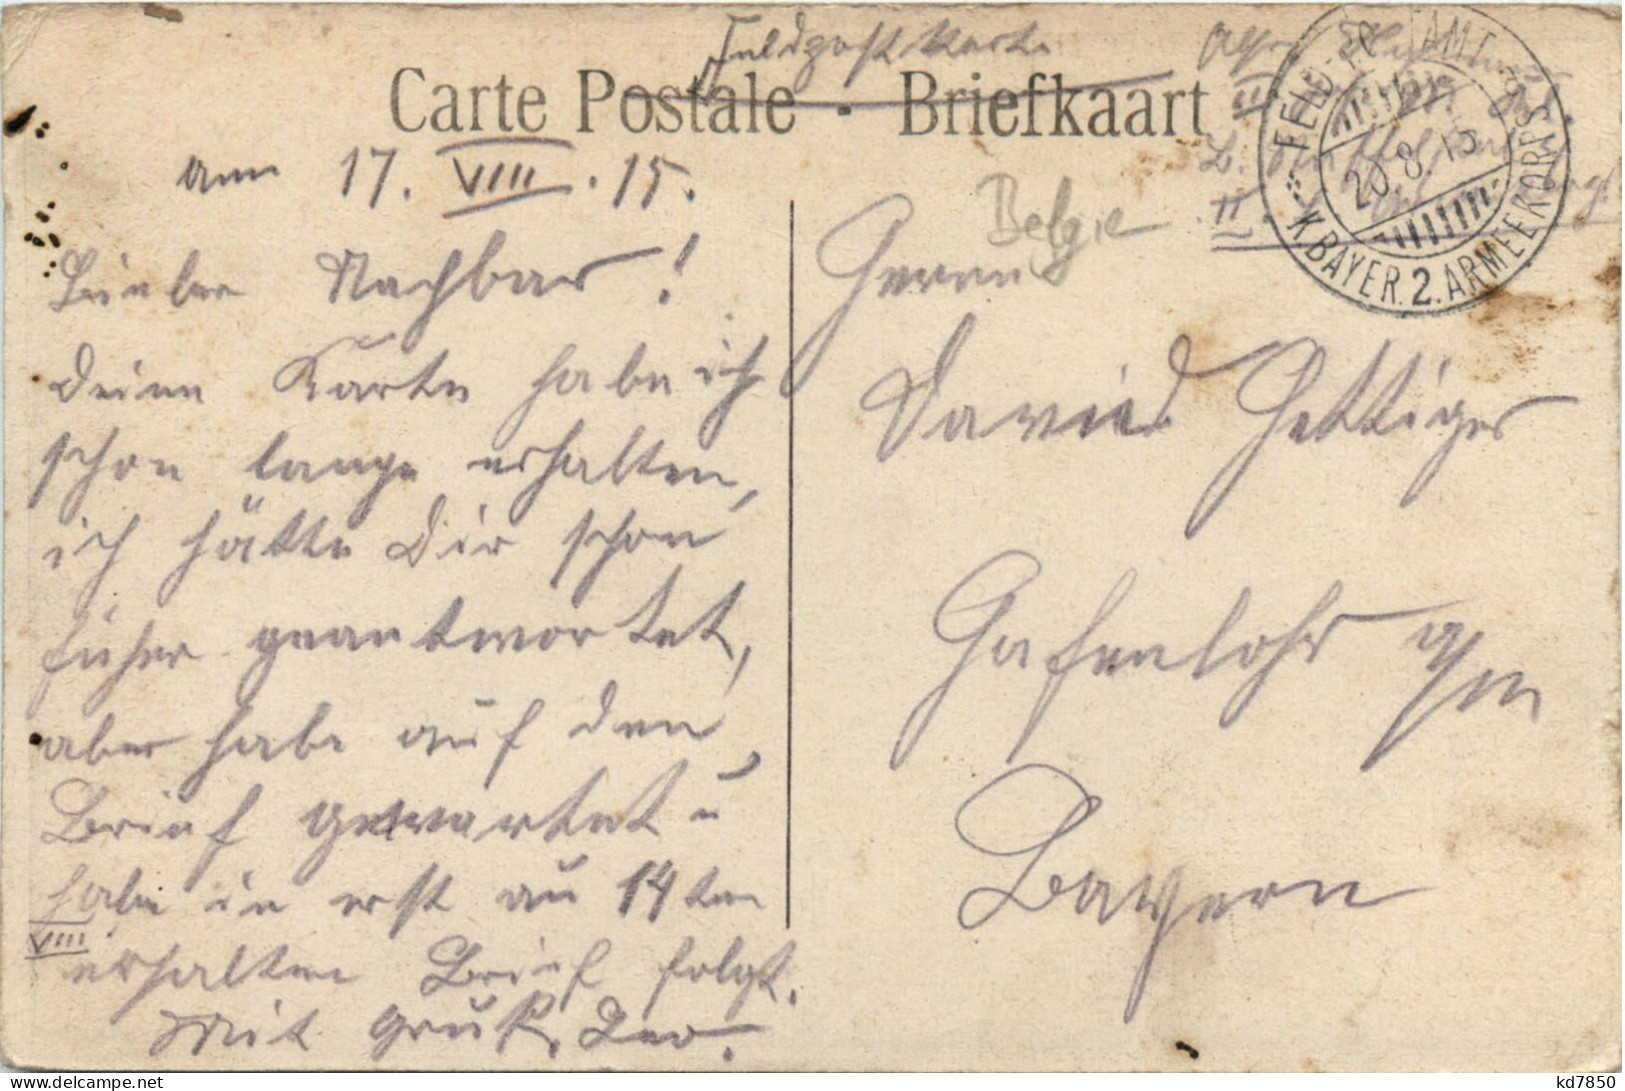 Feldpostkarte
Carte Postale - Briefkaart
FELD-POSTAMT
20.8.15
K.BAYER.2.ARMEEKORPS
am 17. VIII. 15.
Belgie
Lieber Nachbar!
Deine Karte habe ich
schon lange erhalten,
ich hätte Dir schon
früher geantwortet,
aber habe auf den
Brief gewartet u
habe in erst am 14ten
VIII
erhalten Brief folgt.
Mit Gruß, Leo.
Herrn
David Hettiger
Hafenlohr a/m
Bayern
kd7850